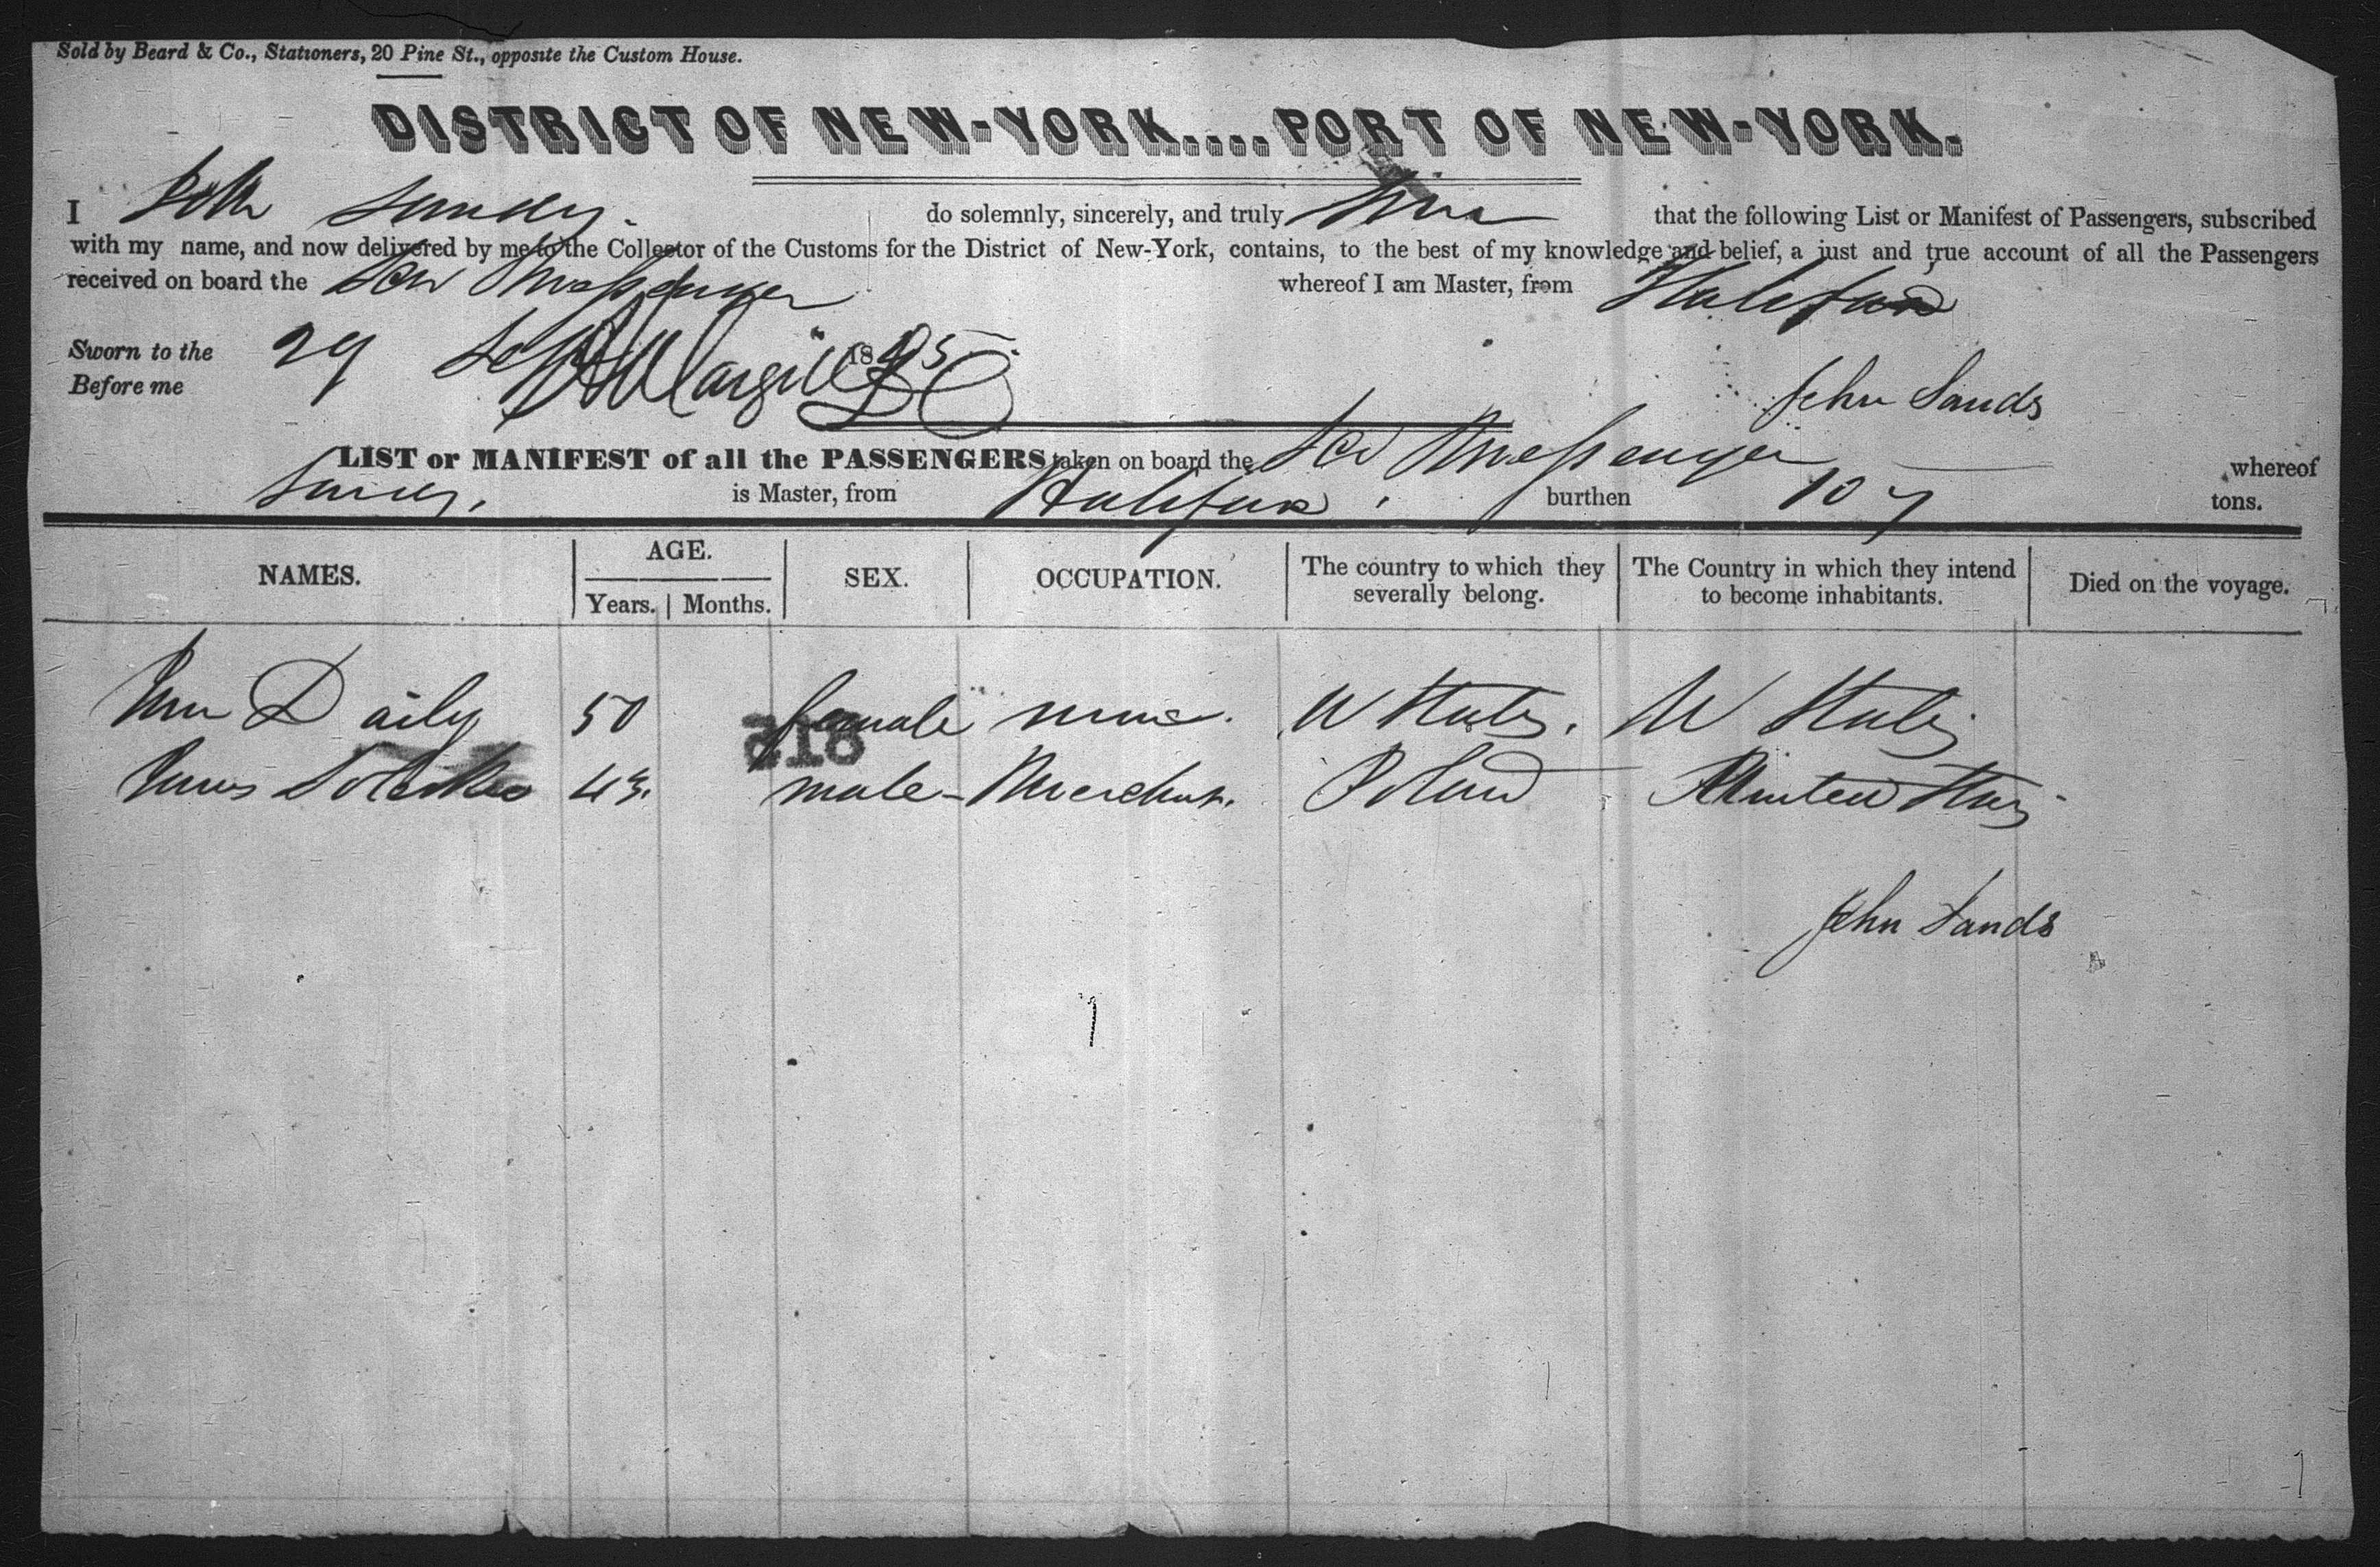 Sold by Beard & Co., Stationers, 20 Pine St., opposite the Custom House.
DISTRICT OF NEW-YORK....PORT OF NEW-YORK.
I John Sands. do solemnly, sincerely, and truly that the following List or Manifest of Passengers, subscribed
with my name, and now delivered by me to the Collector of the Customs for the District of New-York, contains, to the best of my knowledge and belief, a just and true account of all the Passengers
received on board the Sch Messenger whereof I am Master, from Halifax
Sworn to the 29 Sept 1845
Before me
John Sands
LIST or MANIFEST of all the PASSENGERS taken on board the Sch Messenger whereof
Sands. is Master, from Halifax. burthen 107 tons.
NAMES. AGE. SEX. OCCUPATION. The country to which they severally belong. The Country in which they intend to become inhabitants. Died on the voyage.
Years. Months.
Daily 50 female none. U States. U States
43. male Merchant. Poland United States
816
John Sands